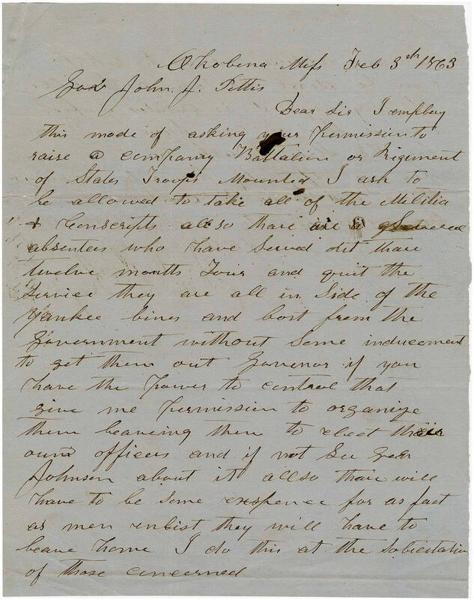 Okobena Miss Feb 3th 1863
Gov John J. Pettis
Dear Sir I employ
this mode of asking your Permission to
raise a company Battalion or Rigement
of States Troops Mounted I ask to
be allowed to take all of the Militia
& Conscripts allso thare are a
absentees who have served out thare
twelve months Tour and quit the
Service they are all in Side of the
Yankee lines and lost from the
Government without some inducement
to get them out Govenor if you
have the Power to control that
give me Permission to organize
them leaveing them to elect their
own officers and if not See Genr
Johnson about it allso thare will
have to be some expence for as fast
as men enlist they will have to
leave home I do this at the Solicitation
of those concerned